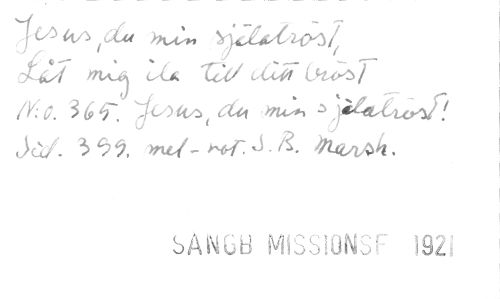 Jesus, du min själatröst,
Låt mig ila till ditt bröst
N:o. 365. Jesus, du min själatröst!
Sid. 399. mel-not. S. B. Marsh.
SANGB MISSIONSF 1921